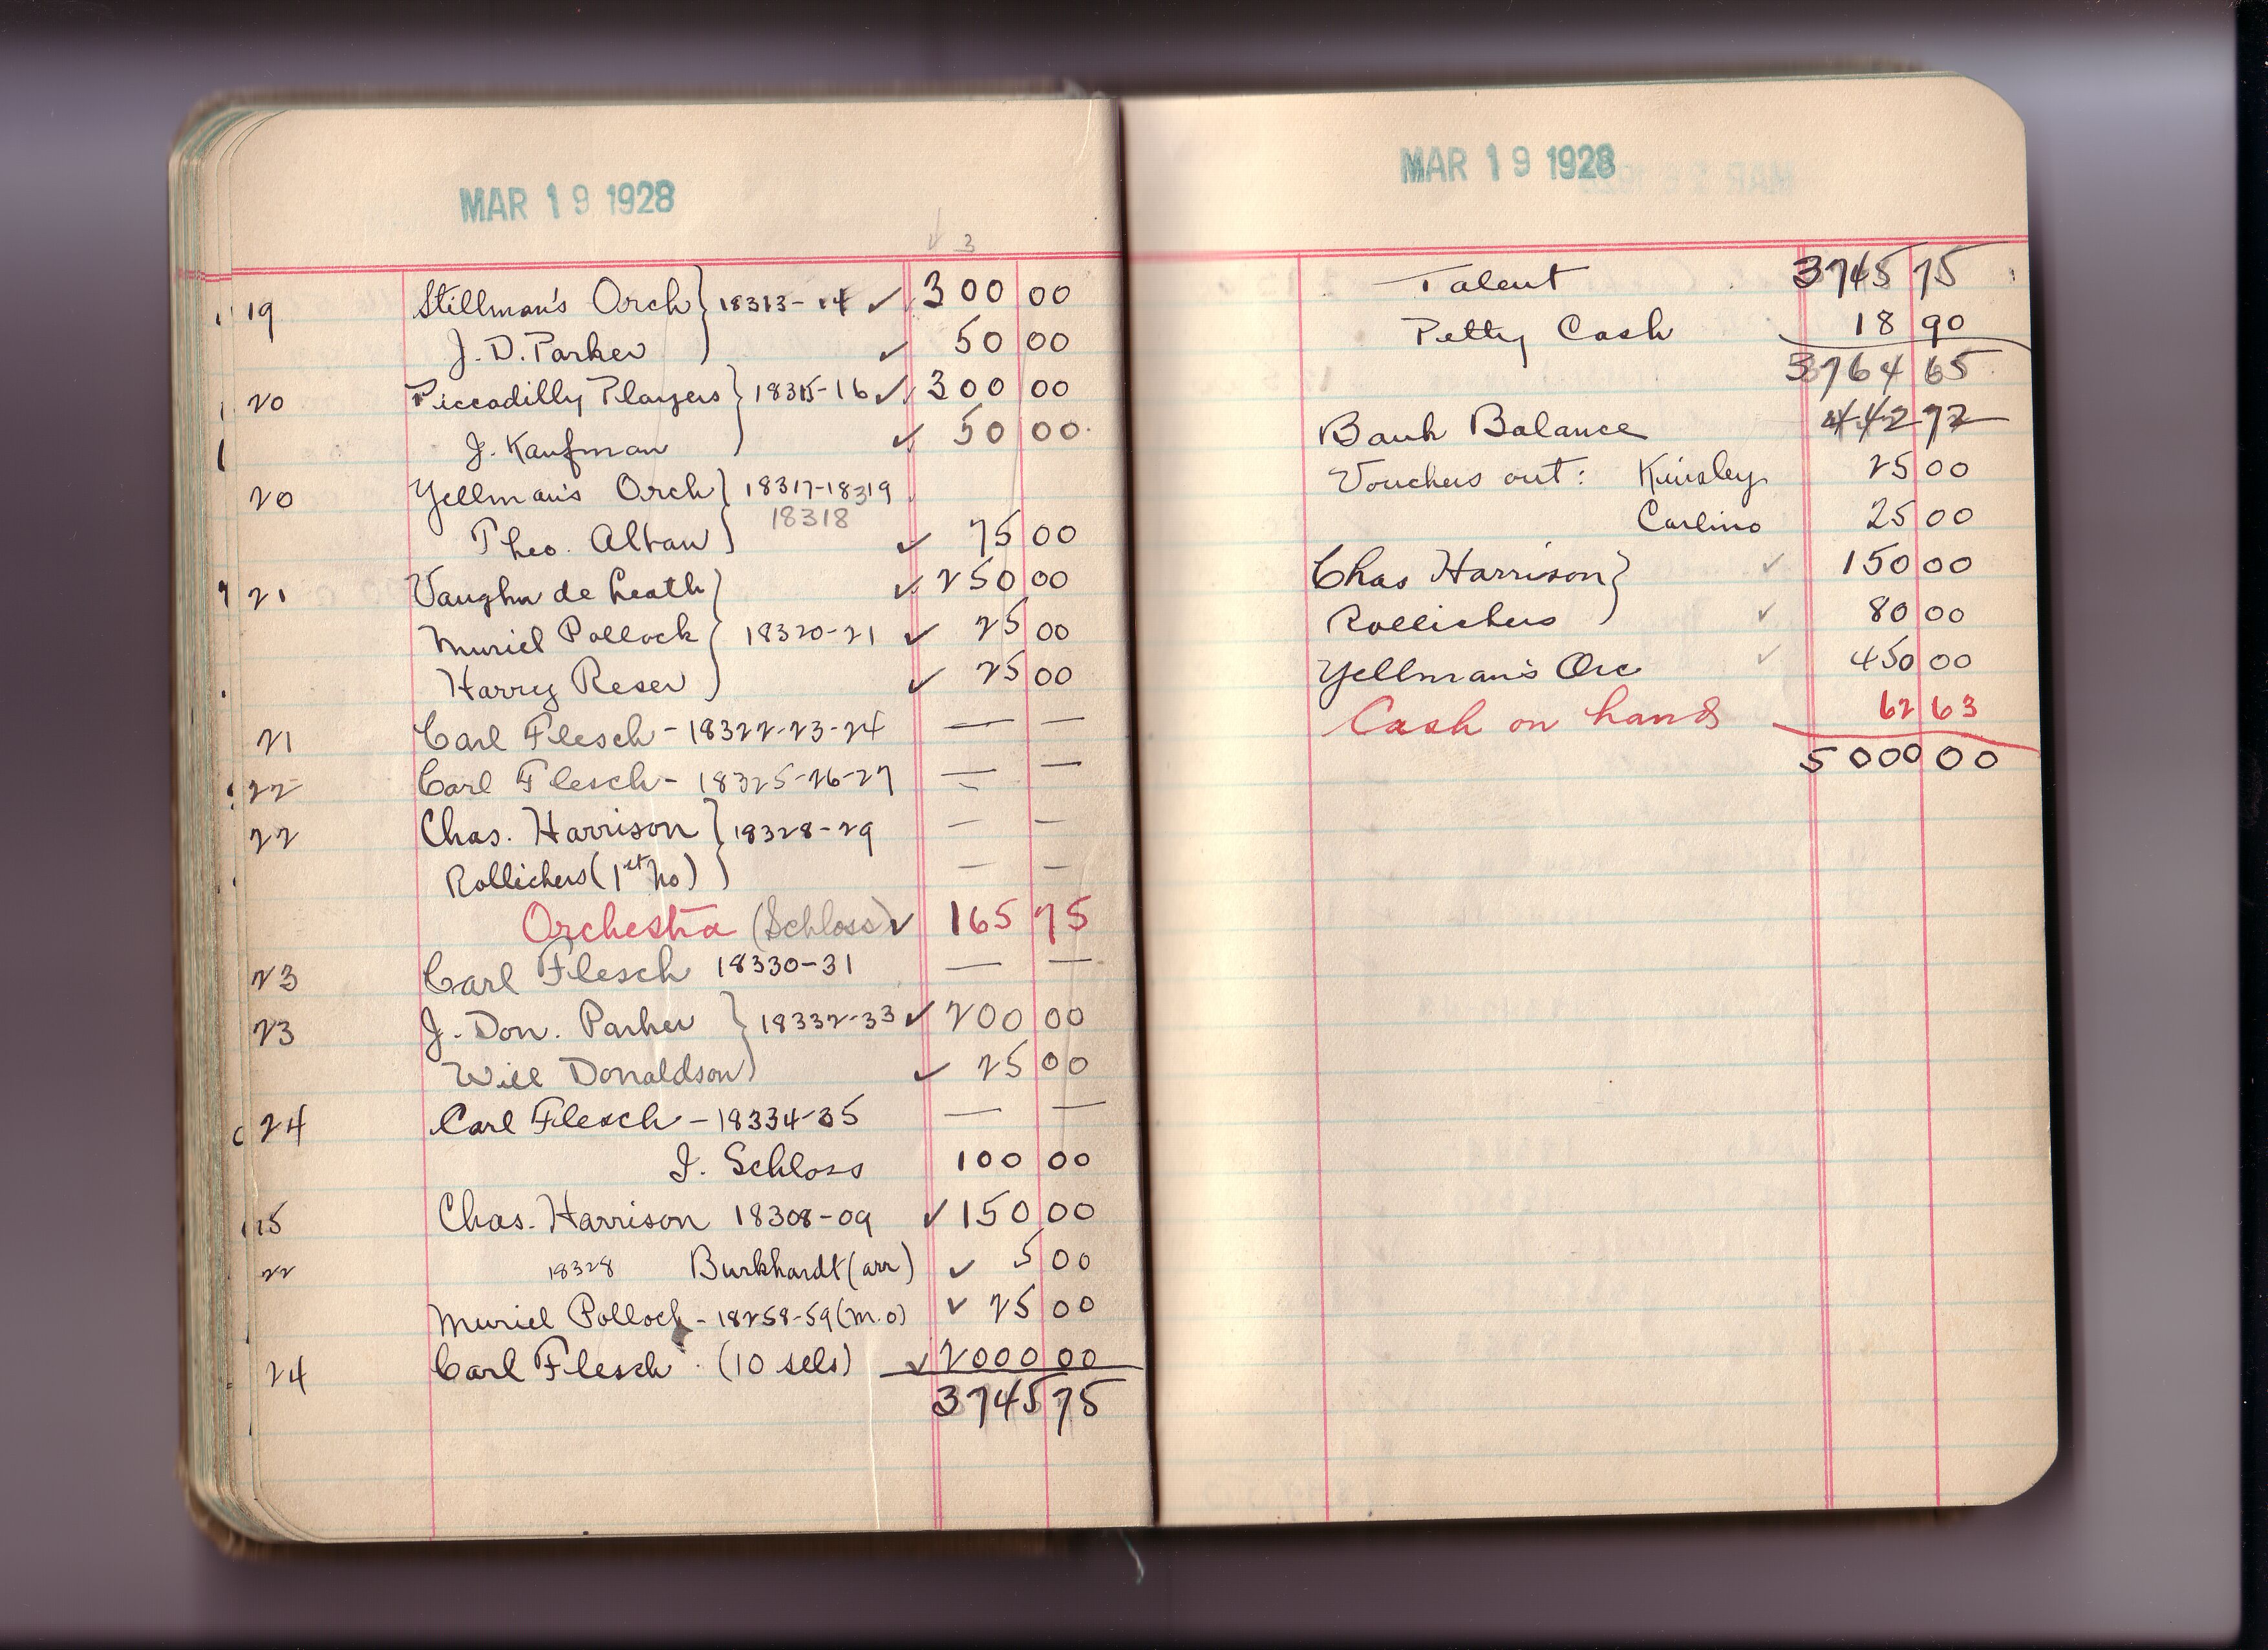 MAR 19 1928
3
19 Stillman's Orch } 18313-14 ✓ 300 00
J. D. Parker ✓ 50 00
20 Piccadilly Players } 18315-16 ✓ 300 00
J. Kaufman ✓ 50 00
20 Yellman's Orch } 18317-18319
18318
Theo. Alban ✓ 75 00
21 Vaughn de Leath } ✓ 250 00
Muriel Pollock } 18320-21 ✓ 25 00
Harry Reser ✓ 25 00
21 Carl Flesch - 18322-23-24 — —
22 Carl Flesch - 18325-26-27 — —
22 Chas. Harrison } 18328-29 — —
Rollickers (1st no) — —
Orchestra (Schloss) ✓ 165 75
23 Carl Flesch 18330-31 — —
23 J. Don. Parker } 18332-33 ✓ 200 00
Will Donaldson ✓ 25 00
24 Carl Flesch - 18334-35 — —
I. Schloss 100 00
15 Chas. Harrison 18308-09 ✓ 150 00
22 18328 Burkhardt (arr) ✓ 5 00
Muriel Pollock - 18258-59 (m.o) ✓ 25 00
24 Carl Flesch (10 sels) ✓ 2000 00
3745 75
MAR 19 1928
Talent 3745 75
Petty Cash 18 90
3764 65
Bank Balance 442 72
Vouchers out: Kinsley 25 00
Carlino 25 00
Chas Harrison } ✓ 150 00
Rollickers ✓ 80 00
Yellman's Orc ✓ 450 00
Cash on hand 62 63
5000 00